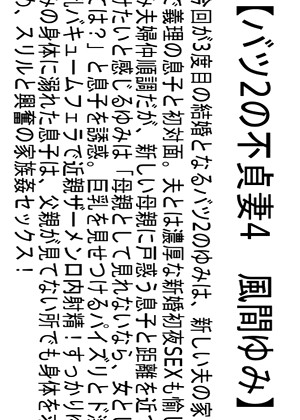 【バツ2の不貞妻4　風間ゆみ】
今回が3度目の結婚となるバツ2のゆみは、新しい夫の家
で義理の息子と初対面。夫とは濃厚な新婚初夜SEXも愉し
み夫婦仲順調だが、新しい母親に戸惑う息子と距離を近づ
けたいと感じるゆみは「母親として見れないなら、女とし
ては？」と息子を誘惑。巨乳を見せつけるパイズリとド
乱バキュームフェラで近親ザーメン口内射精！すっかりゆ
みの身体に溺れた息子は、父親が見てない所でも身体を求
め、スリルと興奮の家族姦セックス！